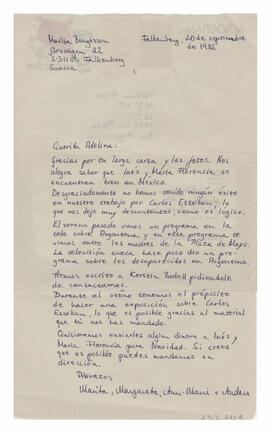 Marita Bengtsson
Falkenberg, 20 de septiembre
de 1982
S-31100 Falkenberg
Suecia
Querida Adelina:
Gracias por tu larga carta, y las fotos. Nos
alegra saber que Inés y María Florencia se
encuentran bien en México.
Desgraciadamente no hemos tenido ningún éxito
en nuestro trabajo por Carlos Esteban, lo
que nos deja muy descontentos, como es lógico.
El verano pasado vimos un programa en la
tele sobre Argentina, y en este programa te
vimos entre las madres de la Plaza de Mayo.
La televisión sueca hace poco dio un pro-
grama sobre los desaparecidos en Argentina.
Hemos escrito a Kerstin Bodell pidiendole
de contactarnos.
Durante el otoño tenemos el propósito
de hacer una exposición sobre Carlos
Esteban, lo que es posible gracias al material
que tú nos has mandado.
Quisieramos enviarles algún dinero a Inés y
María Florencia para Navidad. Si crees
que es posible puedes mandarnos su
dirección.
Abrazos
Marita, Margareta, Ann-Marie y Anders